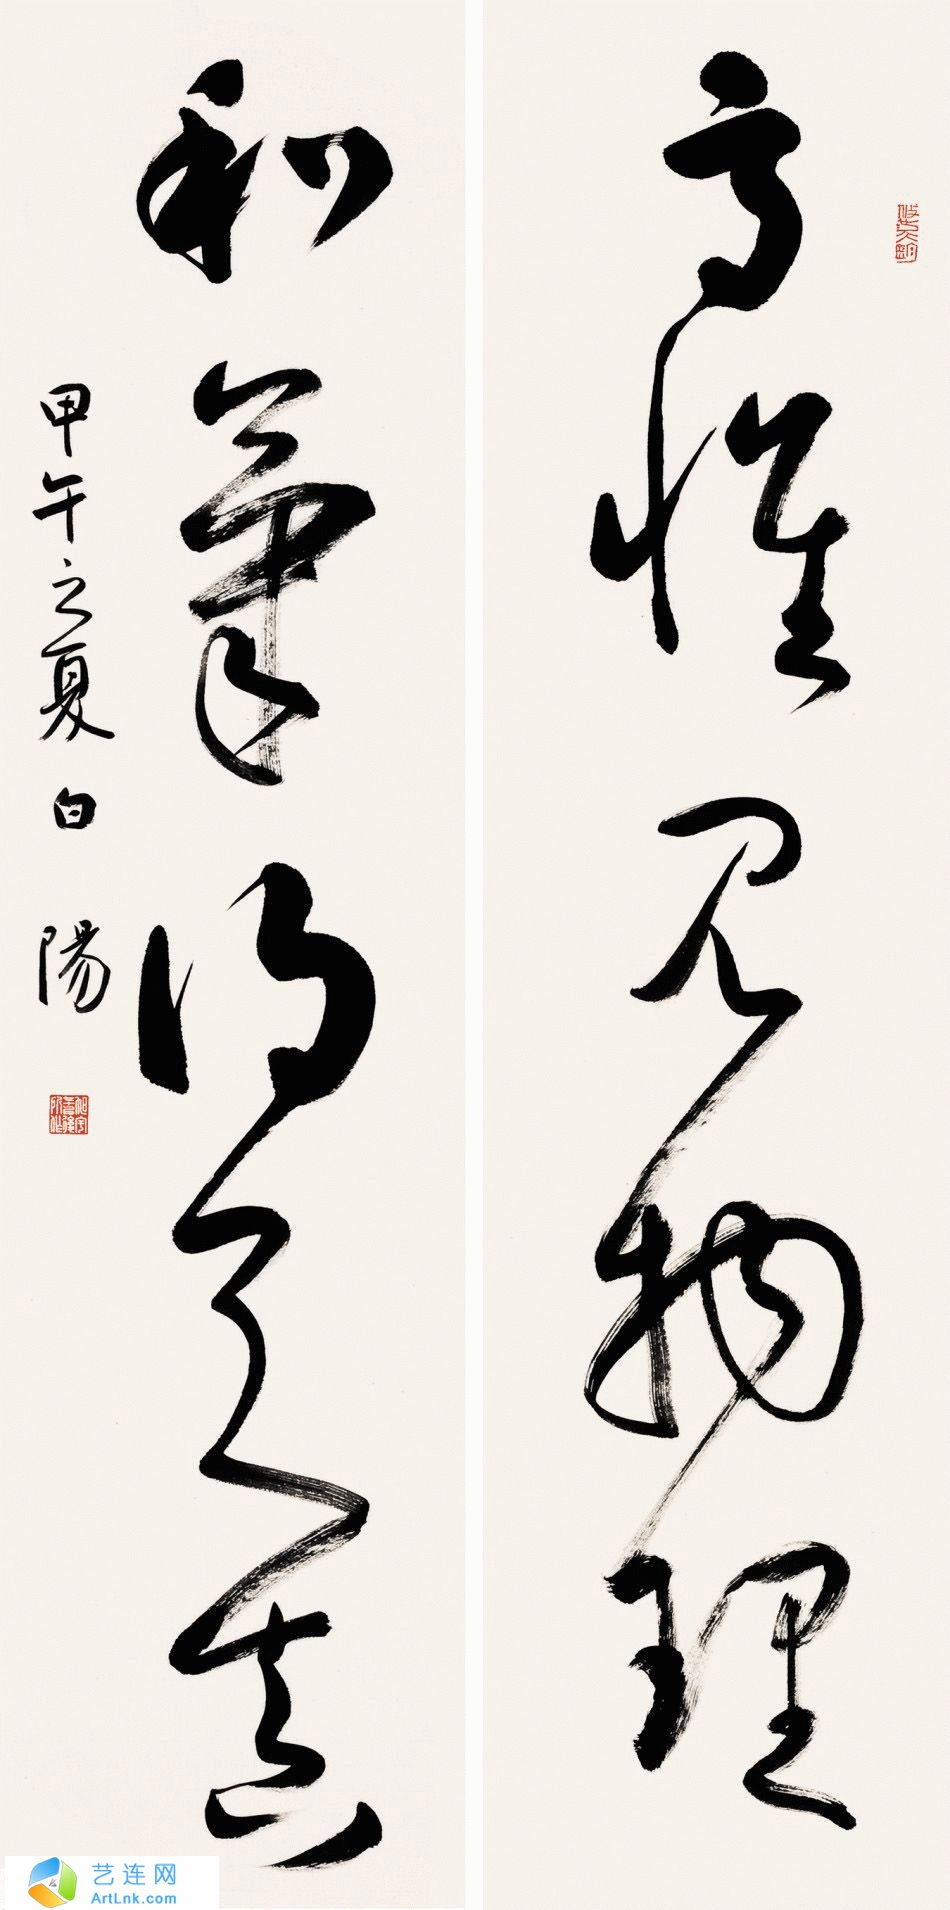 高懷見物理
和氣得天真
甲午之夏白陽
艺连网
ArtLnk.com